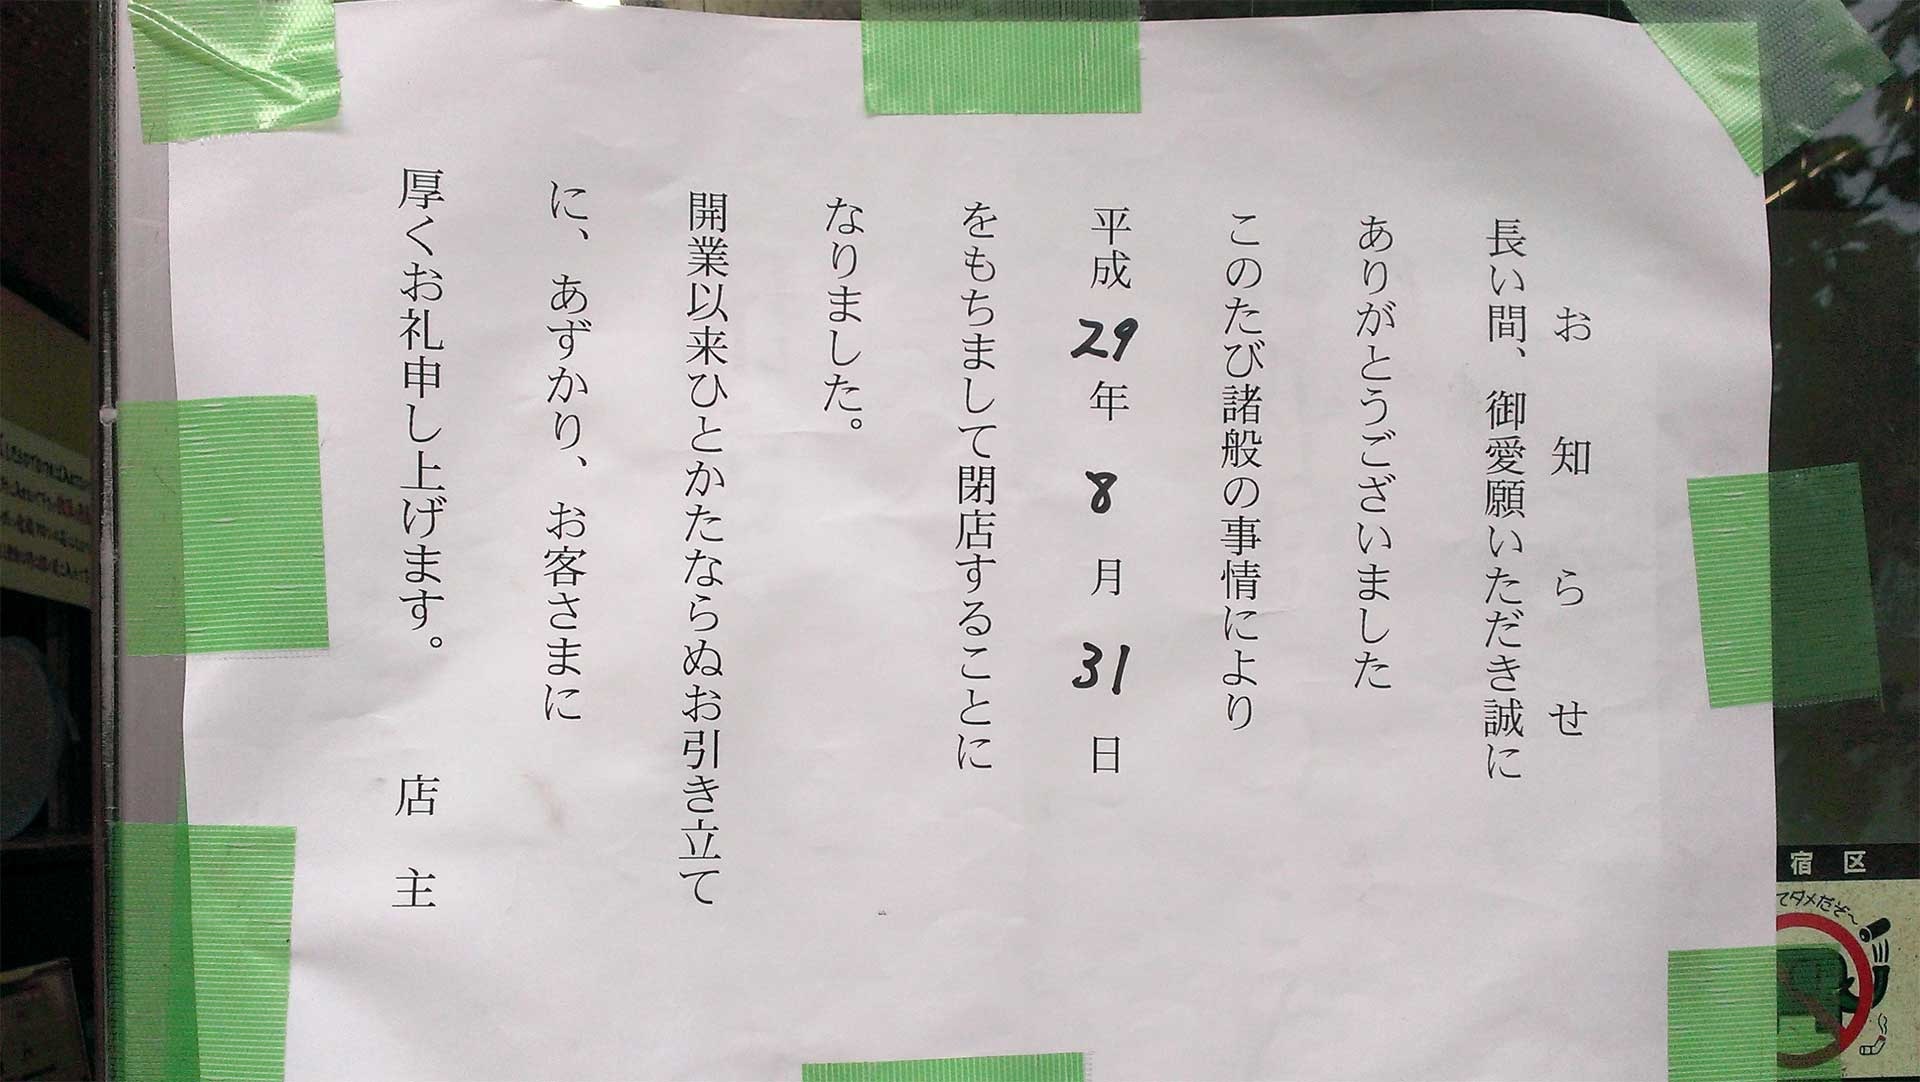 お知らせ
長い間、御愛願いただき誠に
ありがとうございました
このたび諸般の事情により
平成29年8月31日
をもちまして閉店することに
なりました。
開業以来ひとかたならぬお引き立て
に、あずかり、お客さまに
厚くお礼申し上げます。 店主
宿区
てダメだぞ〜